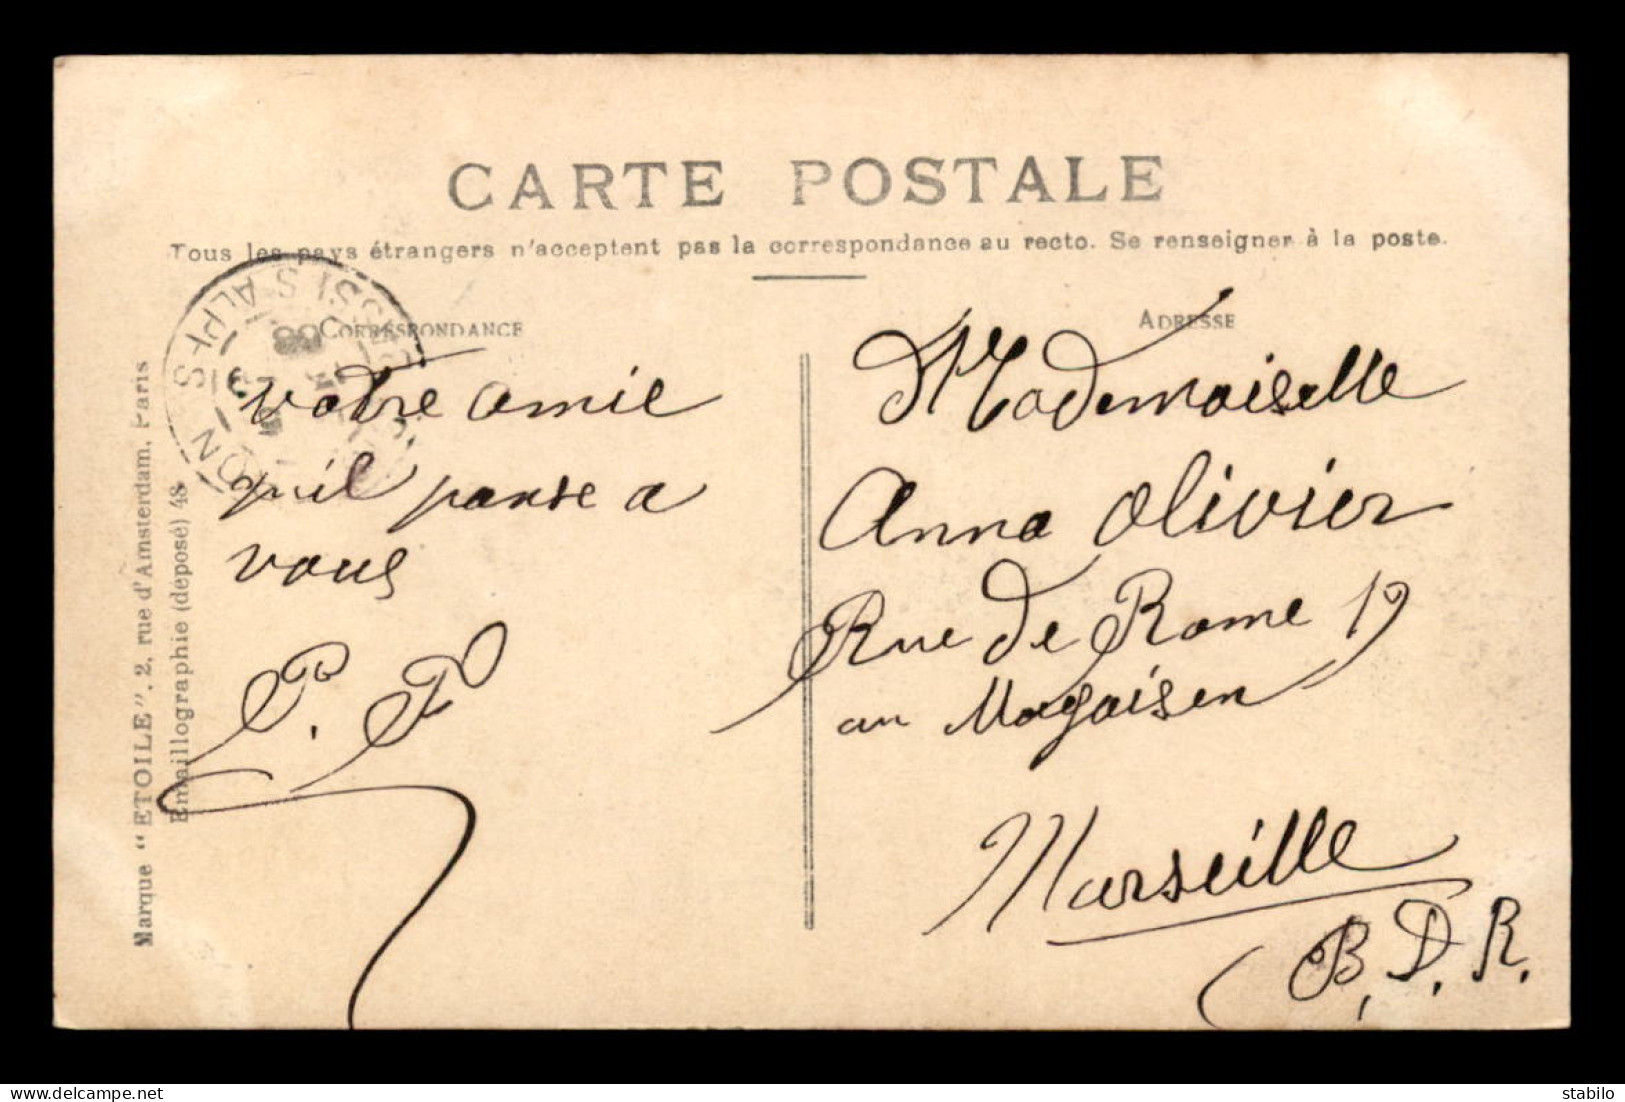 CARTE POSTALE
Tous les pays étrangers n'acceptent pas la correspondance au recto. Se renseigner à la poste.
CORRESPONDANCE
votre amie
quil panse a
vous
P. P
ADRESSE
Mademoiselle
Anna Olivier
Rue de Rome 19
au Magaisen
Marseille
B. D. R.
Marque "ETOILE", 2, rue d'Amsterdam, Paris
Emaillographie (déposé) 48
S ALPES
08
stabilo